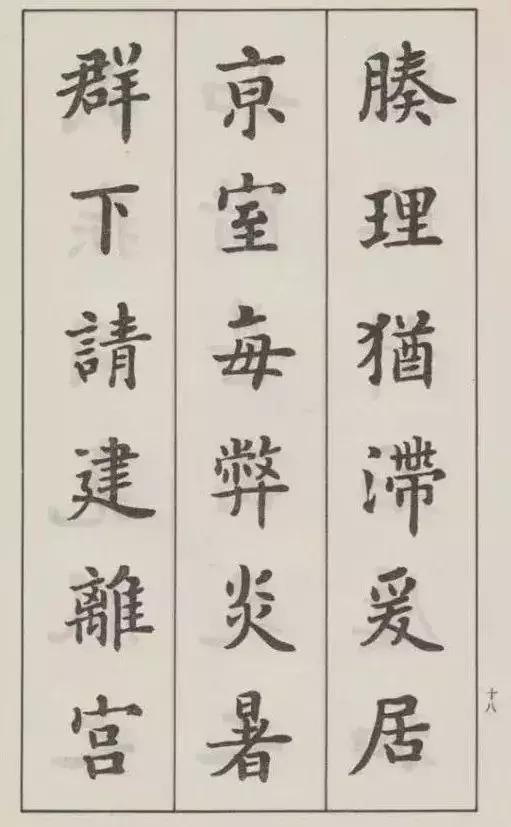 腠理猶滯爰居
京室每弊炎暑
群下請建離宮
十八